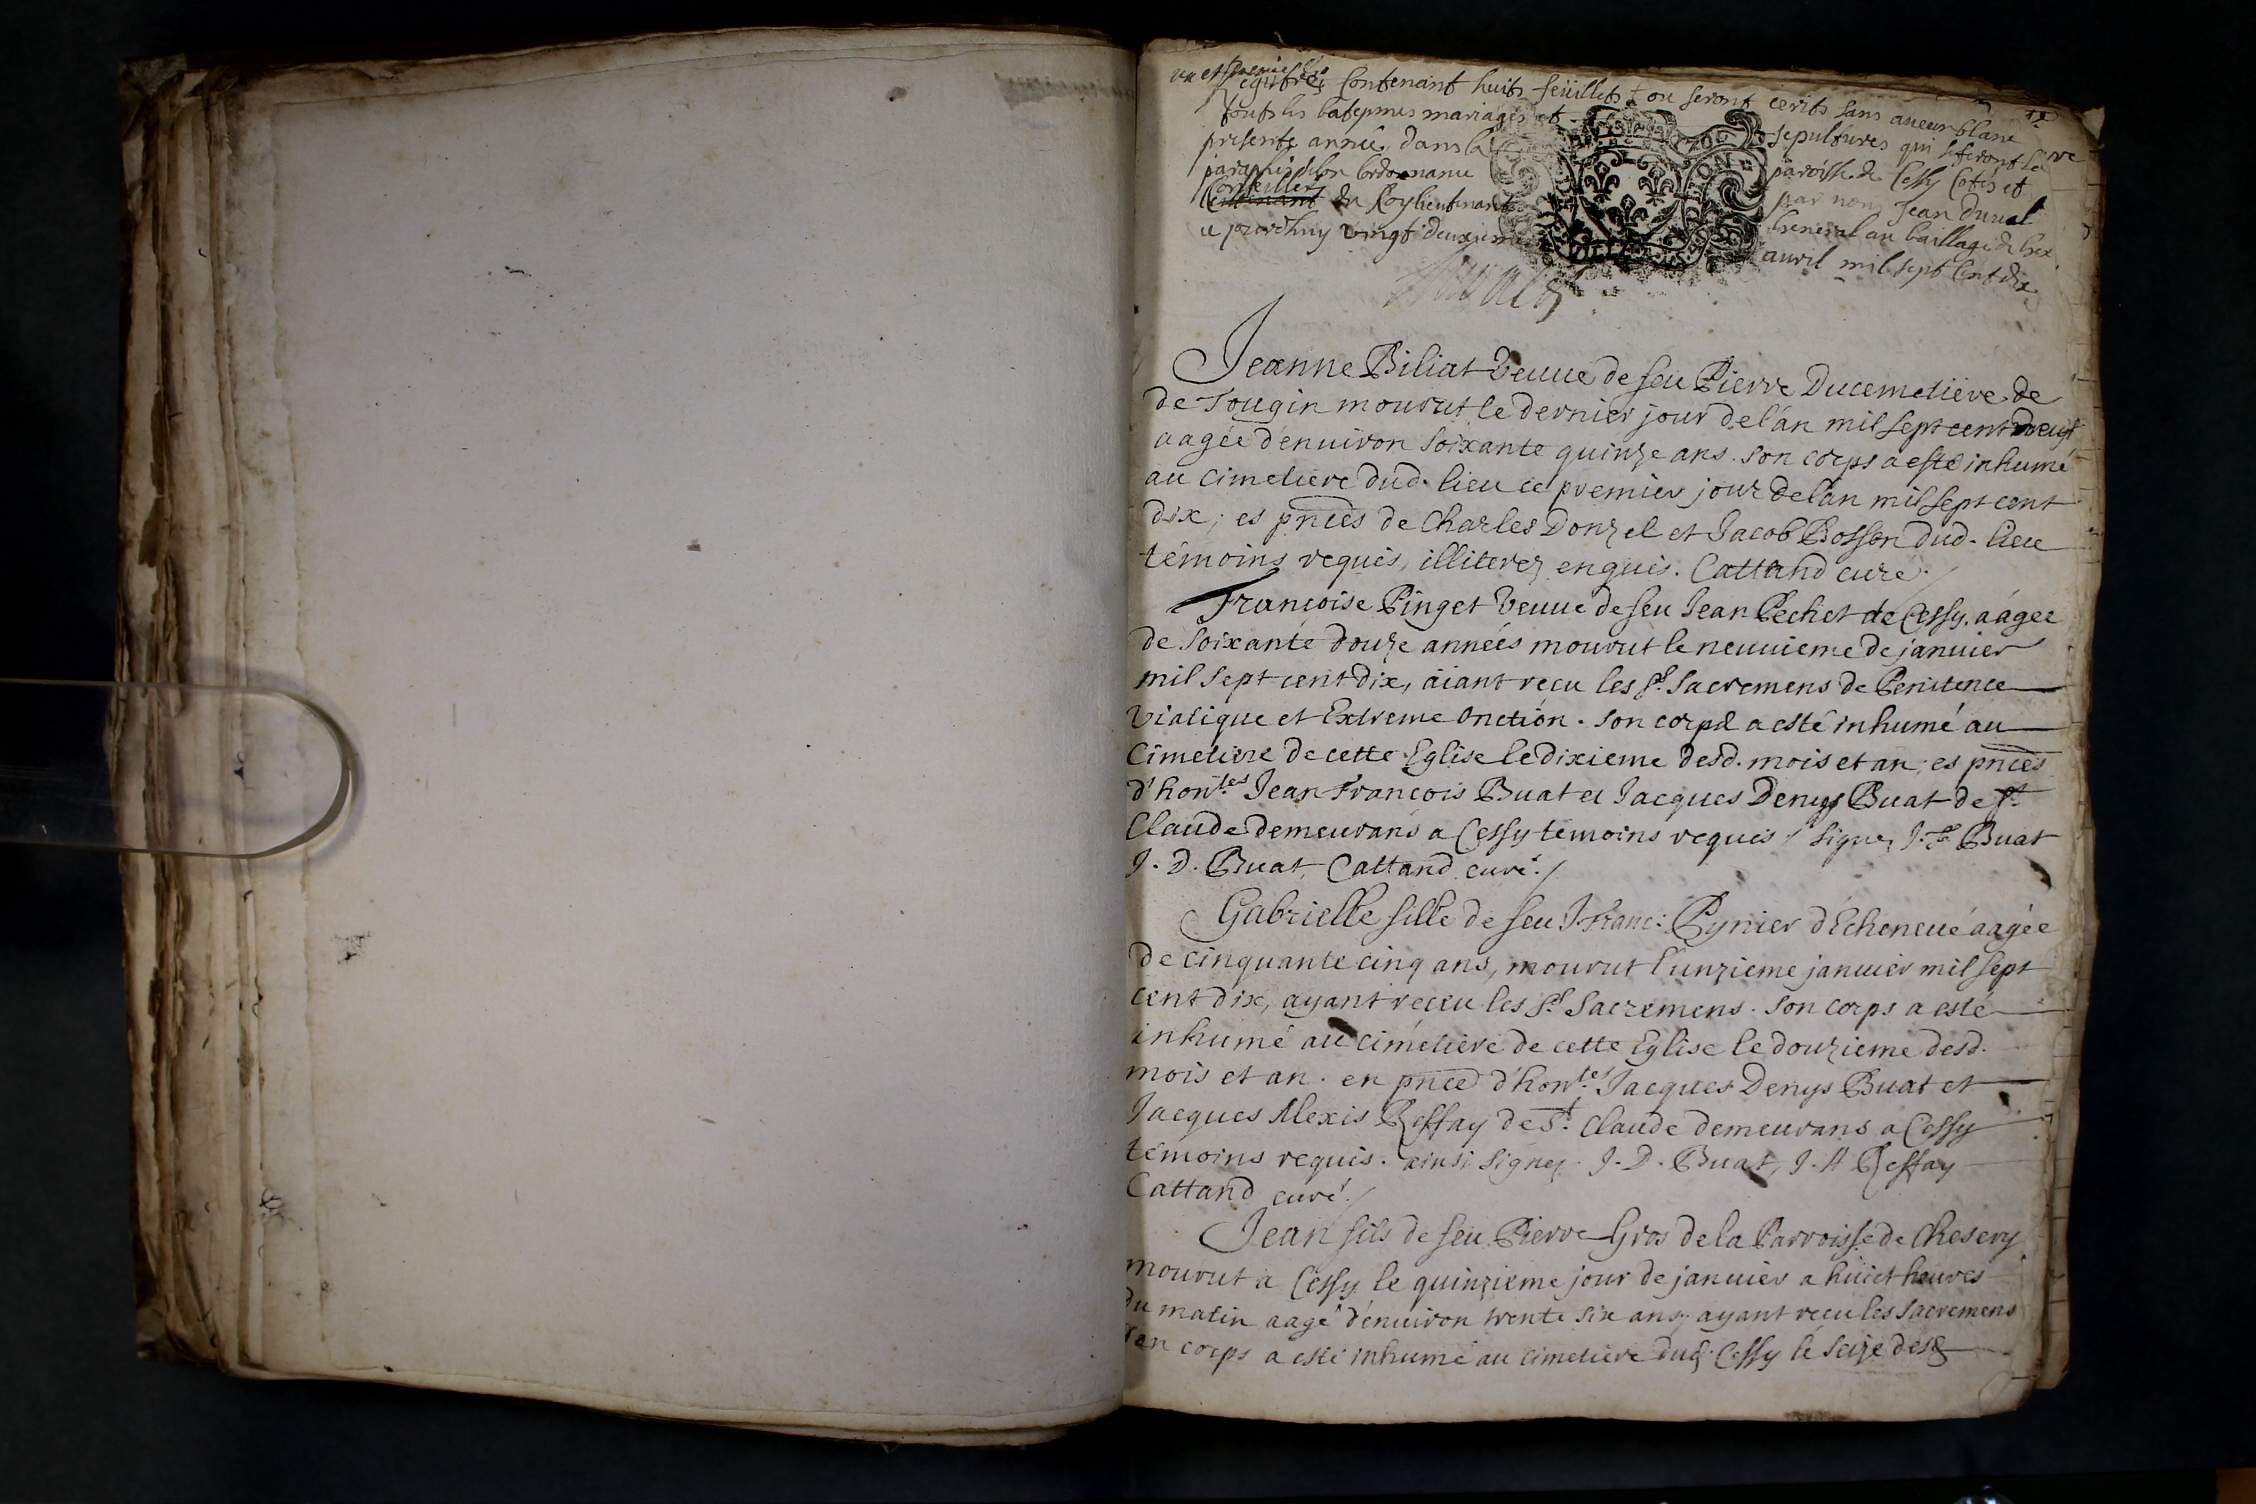 Registres Contenant huits feüillets ou seront ecrits sans aucun blanc
touts les batesmes mariages et sepultures qui se feront la
presente année dans la paroisse de Cessy Cotés et
paraphés selon lordonnance par nous Jean duval
Conseiller du Roy lieutenant General au baillage de Gex
ce jourdhuy vingt deuxieme auril mil sept Cent dix
Duval
Jeanne Biliat Veuue de feu Pierre Ducemetiere de
de Tougin mourut le dernier jour de l'an mil sept cent neuf
aagée d'enuiron soixante quinze ans. son corps a esté inhumé
au cimetiere dud. lieu ce premier jour de l'an mil sept cent
dix; es pnces de Charles Donzel et Jacob Bosson dud. lieu
témoins requis, illiterez enquis. Cattand curé./
Françoise Pinget Veuue de feu Jean Pechet de Cessy. aágee
de soixante douze années mourut le neuuieme de januier
mil sept cent dix, aiant reçu les sts. sacremens de Penitence
Viatique et Extreme Onction. son corps a esté inhumé au
Cimetiere de cette Eglise le dixieme desd. mois et an; es pnces
d'hontes. Jean François Buat et Jacques Denys Buat de St.
Claude demeurans a Cessy temoins requis / signez J. F. Buat
J. D. Buat, Cattand curé./
Gabrielle fille de feu J. Franc: Pynier d'Echeneué áagée
de cinquante cinq ans, mourut l'unzieme januier mil sept
cent dix, ayant reçeu les sts. Sacremens. son corps a esté
inhumé au cimetiere de cette Eglise le douzieme desd.
mois et an. en pnce d'hontes. Jacques Denys Buat et
Jacques Alexis Reffay de St. Claude demeurans a Cessy
témoins requis. ainsi signez. J. D. Buat, J. A Reffay
Cattand curé./
Jean fils de feu Pierre Gros de la Parroisse de Chesery
mourut a Cessy le quinzieme jour de januier a huict heures
du matin aagé d'enuiron trente six ans; ayant reçu les sacremens
son corps a esté inhumé au cimetiere dud. Cessy le seize desd